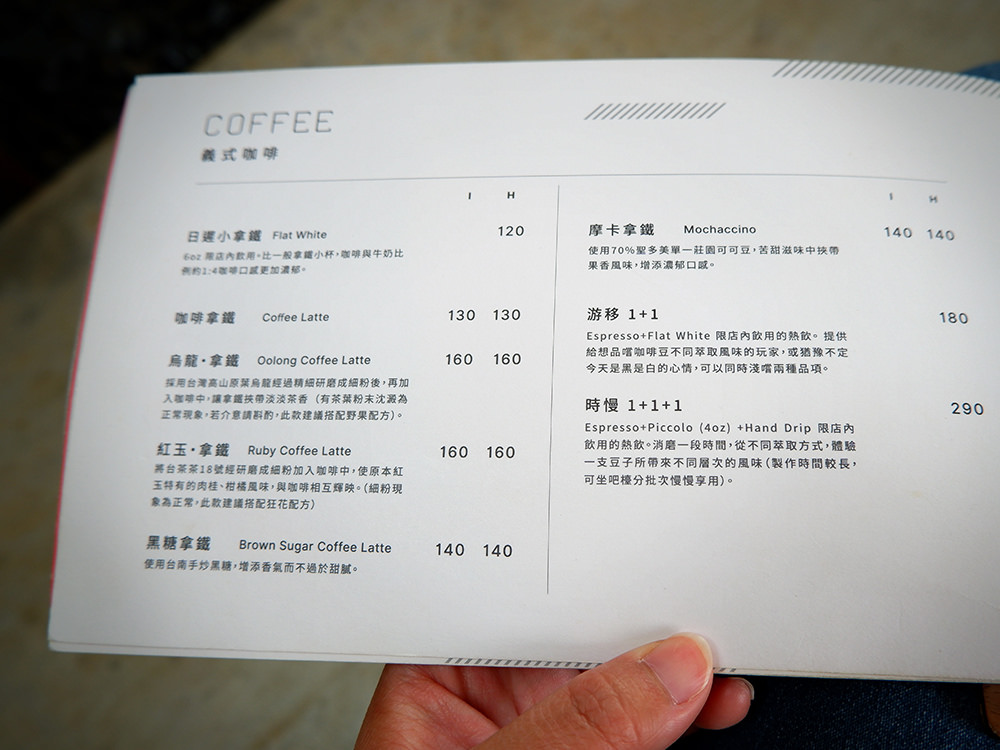 COFFEE
義式咖啡
I H
日遲小拿鐵 Flat White 120
6oz 限店內飲用。比一般拿鐵小杯,咖啡與牛奶比
例約1:4咖啡口感更加濃郁。
咖啡拿鐵 Coffee Latte 130 130
烏龍・拿鐵 Oolong Coffee Latte 160 160
採用台灣高山原葉烏龍經過精細研磨成細粉後,再加
入咖啡中,讓拿鐵挾帶淡淡茶香（有茶葉粉末沈澱為
正常現象,若介意請斟酌,此款建議搭配野果配方）。
紅玉・拿鐵 Ruby Coffee Latte 160 160
將台茶茶18號經研磨成細粉加入咖啡中,使原本紅
玉特有的肉桂、柑橘風味,與咖啡相互輝映。（細粉現
象為正常,此款建議搭配狂花配方）
黑糖拿鐵 Brown Sugar Coffee Latte 140 140
使用台南手炒黑糖,增添香氣而不過於甜膩。
I H
摩卡拿鐵 Mochaccino 140 140
使用70%聖多美單一莊園可可豆,苦甜滋味中挾帶
果香風味,增添濃郁口感。
游移 1+1 180
Espresso+Flat White 限店內飲用的熱飲。提供
給想品嚐咖啡豆不同萃取風味的玩家,或猶豫不定
今天是黑是白的心情,可以同時淺嚐兩種品項。
時慢 1+1+1 290
Espresso+Piccolo (4oz) +Hand Drip 限店內
飲用的熱飲。消磨一段時間,從不同萃取方式,體驗
一支豆子所帶來不同層次的風味（製作時間較長,
可坐吧檯分批次慢慢享用）。